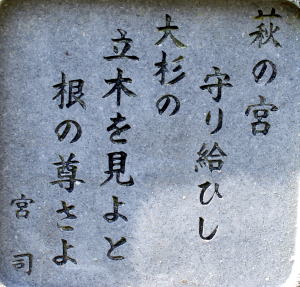 萩の宮
守り給ひし
大杉の
立木を見よと
根の尊さよ
宮司